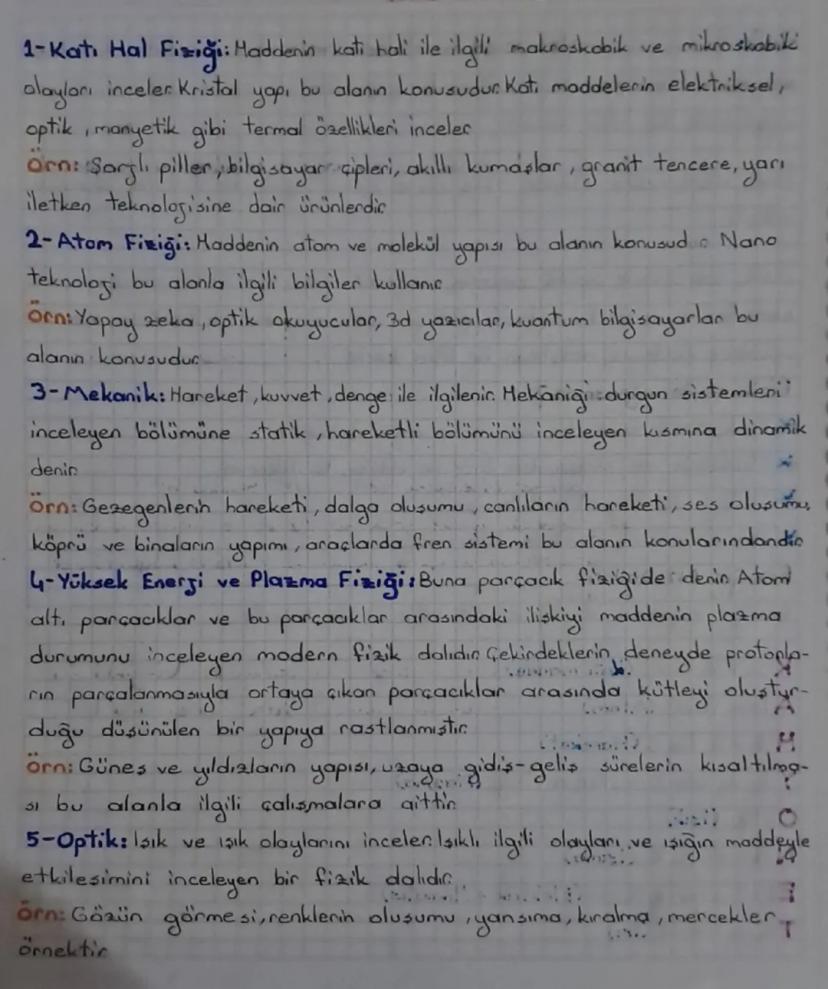 1-Katı Hal Fiziği: Maddenin katı hali ile ilgili makroskobik ve mikroskobik
olayları inceler. Kristal yapı bu alanın konusudur. Katı maddelerin elektriksel,
optik, manyetik gibi termal özellikleri inceler.
Örn: Şarjlı piller, bilgisayar çipleri, akıllı kumaşlar, granit tencere, yarı
iletken teknolojisine dair ürünlerdir.
2-Atom Fiziği: Maddenin atom ve molekül yapısı bu alanın konusud Nano
teknoloji bu alanla ilgili bilgiler kullanır.
Örn: Yapay zeka, optik okuyucular, 3d yazıcılar, kuantum bilgisayarlar bu
alanın konusudur.
3-Mekanik: Hareket, kuvvet, denge ile ilgilenir. Mekaniği durgun sistemleri
inceleyen bölümüne statik, hareketli bölümünü inceleyen kısmına dinamik
denir.
Örn: Gezegenlerin hareketi, dalga oluşumu, canlıların hareketi, ses oluşumu,
köprü ve binaların yapımı, araçlarda fren sistemi bu alanın konularındandır
4-Yüksek Enerji ve Plazma Fiziği: Buna parçacık fiziğide denir. Atom
altı parçacıklar ve bu parçacıklar arasındaki ilişkiyi maddenin plazma
durumunu inceleyen modern fizik dalıdır. Çekirdeklerin deneyde protonla-
rın parçalanmasıyla ortaya çıkan parçacıklar arasında kütleyi oluştur-
duğu düşünülen bir yapıya rastlanmıştır.
Örn: Güneş ve yıldızların yapısı, uzaya gidiş-geliş sürelerin kısaltılma-
sı bu alanla ilgili çalışmalara aittir.
5-Optik: Işık ve ışık olaylarını inceler. Işıklı ilgili olayları ve ışığın maddeyle
etkileşimini inceleyen bir fizik dalıdır.
Örn: Gözün görmesi, renklerin oluşumu, yansıma, kırılma, mercekler
örnektir.